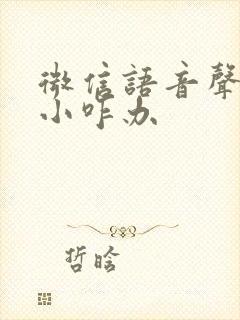 微信語音聲
小咋办
哲晗